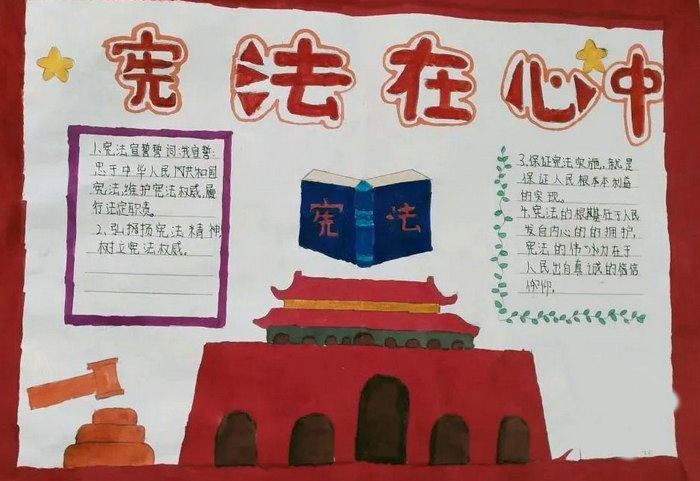 宪法在心中
1.宪法宣誓誓词:我宣誓:
忠于中华人民共和国
宪法,维护宪法权威,履
行法定职责。
2、弘扬宪法精神,
树立宪法权威。
宪法
3.保证宪法实施,就是
保证人民根本利益
的实现。
4.宪法的根基在于人民
发自内心的的拥护,
宪法的伟力在于
人民出自真诚的
信仰。